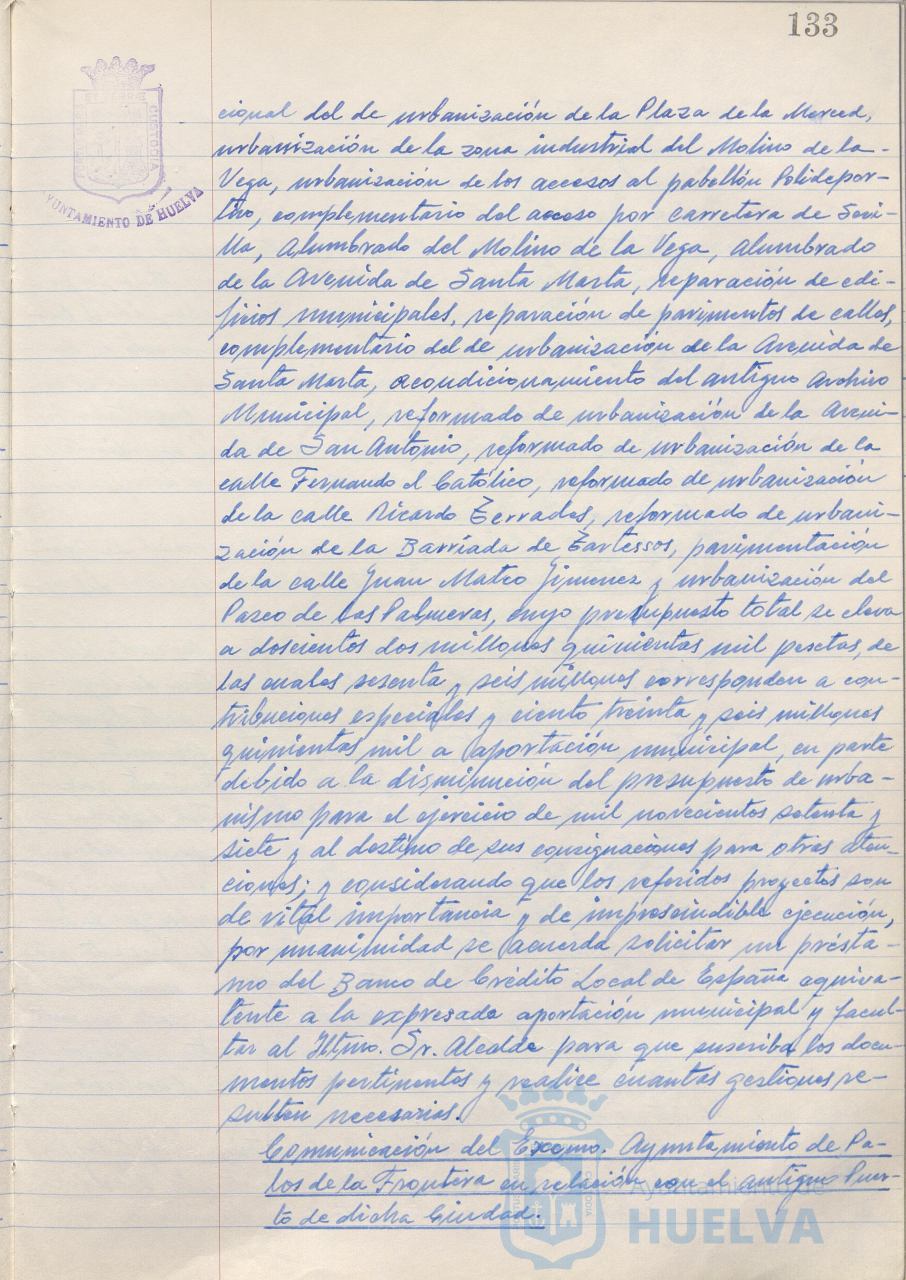 133
AYUNTAMIENTO DE HUELVA
cional del de urbanización de la Plaza de la Merced,
urbanización de la zona industrial del Molino de la
Vega, urbanización de los accesos al pabellón Polidepor-
tivo, complementario del acceso por carretera de Sevi-
lla, Alumbrado del Molino de la Vega, alumbrado
de la Avenida de Santa Marta, reparación de edi-
ficios municipales, reparación de pavimentos de calles,
complementario del de urbanización de la Avenida de
Santa Marta, acondicionamiento del antiguo Archivo
Municipal, reformado de urbanización de la Aveni-
da de San Antonio, reformado de urbanización de la
calle Fernando el Católico, reformado de urbanización
de la calle Ricardo Terrades, reformado de urbani-
zación de la Barriada de Tartessos, pavimentación
de la calle Juan Mateo Jimenez y urbanización del
Paseo de las Palmeras, cuyo presupuesto total se eleva
a doscientos dos millones quinientas mil pesetas, de
las cuales sesenta y seis millones corresponden a con-
tribuciones especiales y ciento treinta y seis millones
quinientas mil a aportación municipal, en parte
debido a la disminución del presupuesto de urba-
nismo para el ejercicio de mil novecientos setenta y
siete y al destino de sus consignaciones para otras aten-
ciones; y considerando que los referidos proyectos son
de vital importancia y de imprescindible ejecución,
por unanimidad se acuerda solicitar un présta-
mo del Banco de Crédito Local de España equiva-
lente a la expresada aportación municipal y facul-
tar al Iltmo. Sr. Alcalde para que suscriba los docu-
mentos pertinentes y realice cuantas gestiones re-
sulten necesarias.
Comunicación del Excmo. Ayuntamiento de Pa-
los de la Frontera en relación con el antiguo Puer-
to de dicha Ciudad.
Ayuntamiento de
HUELVA